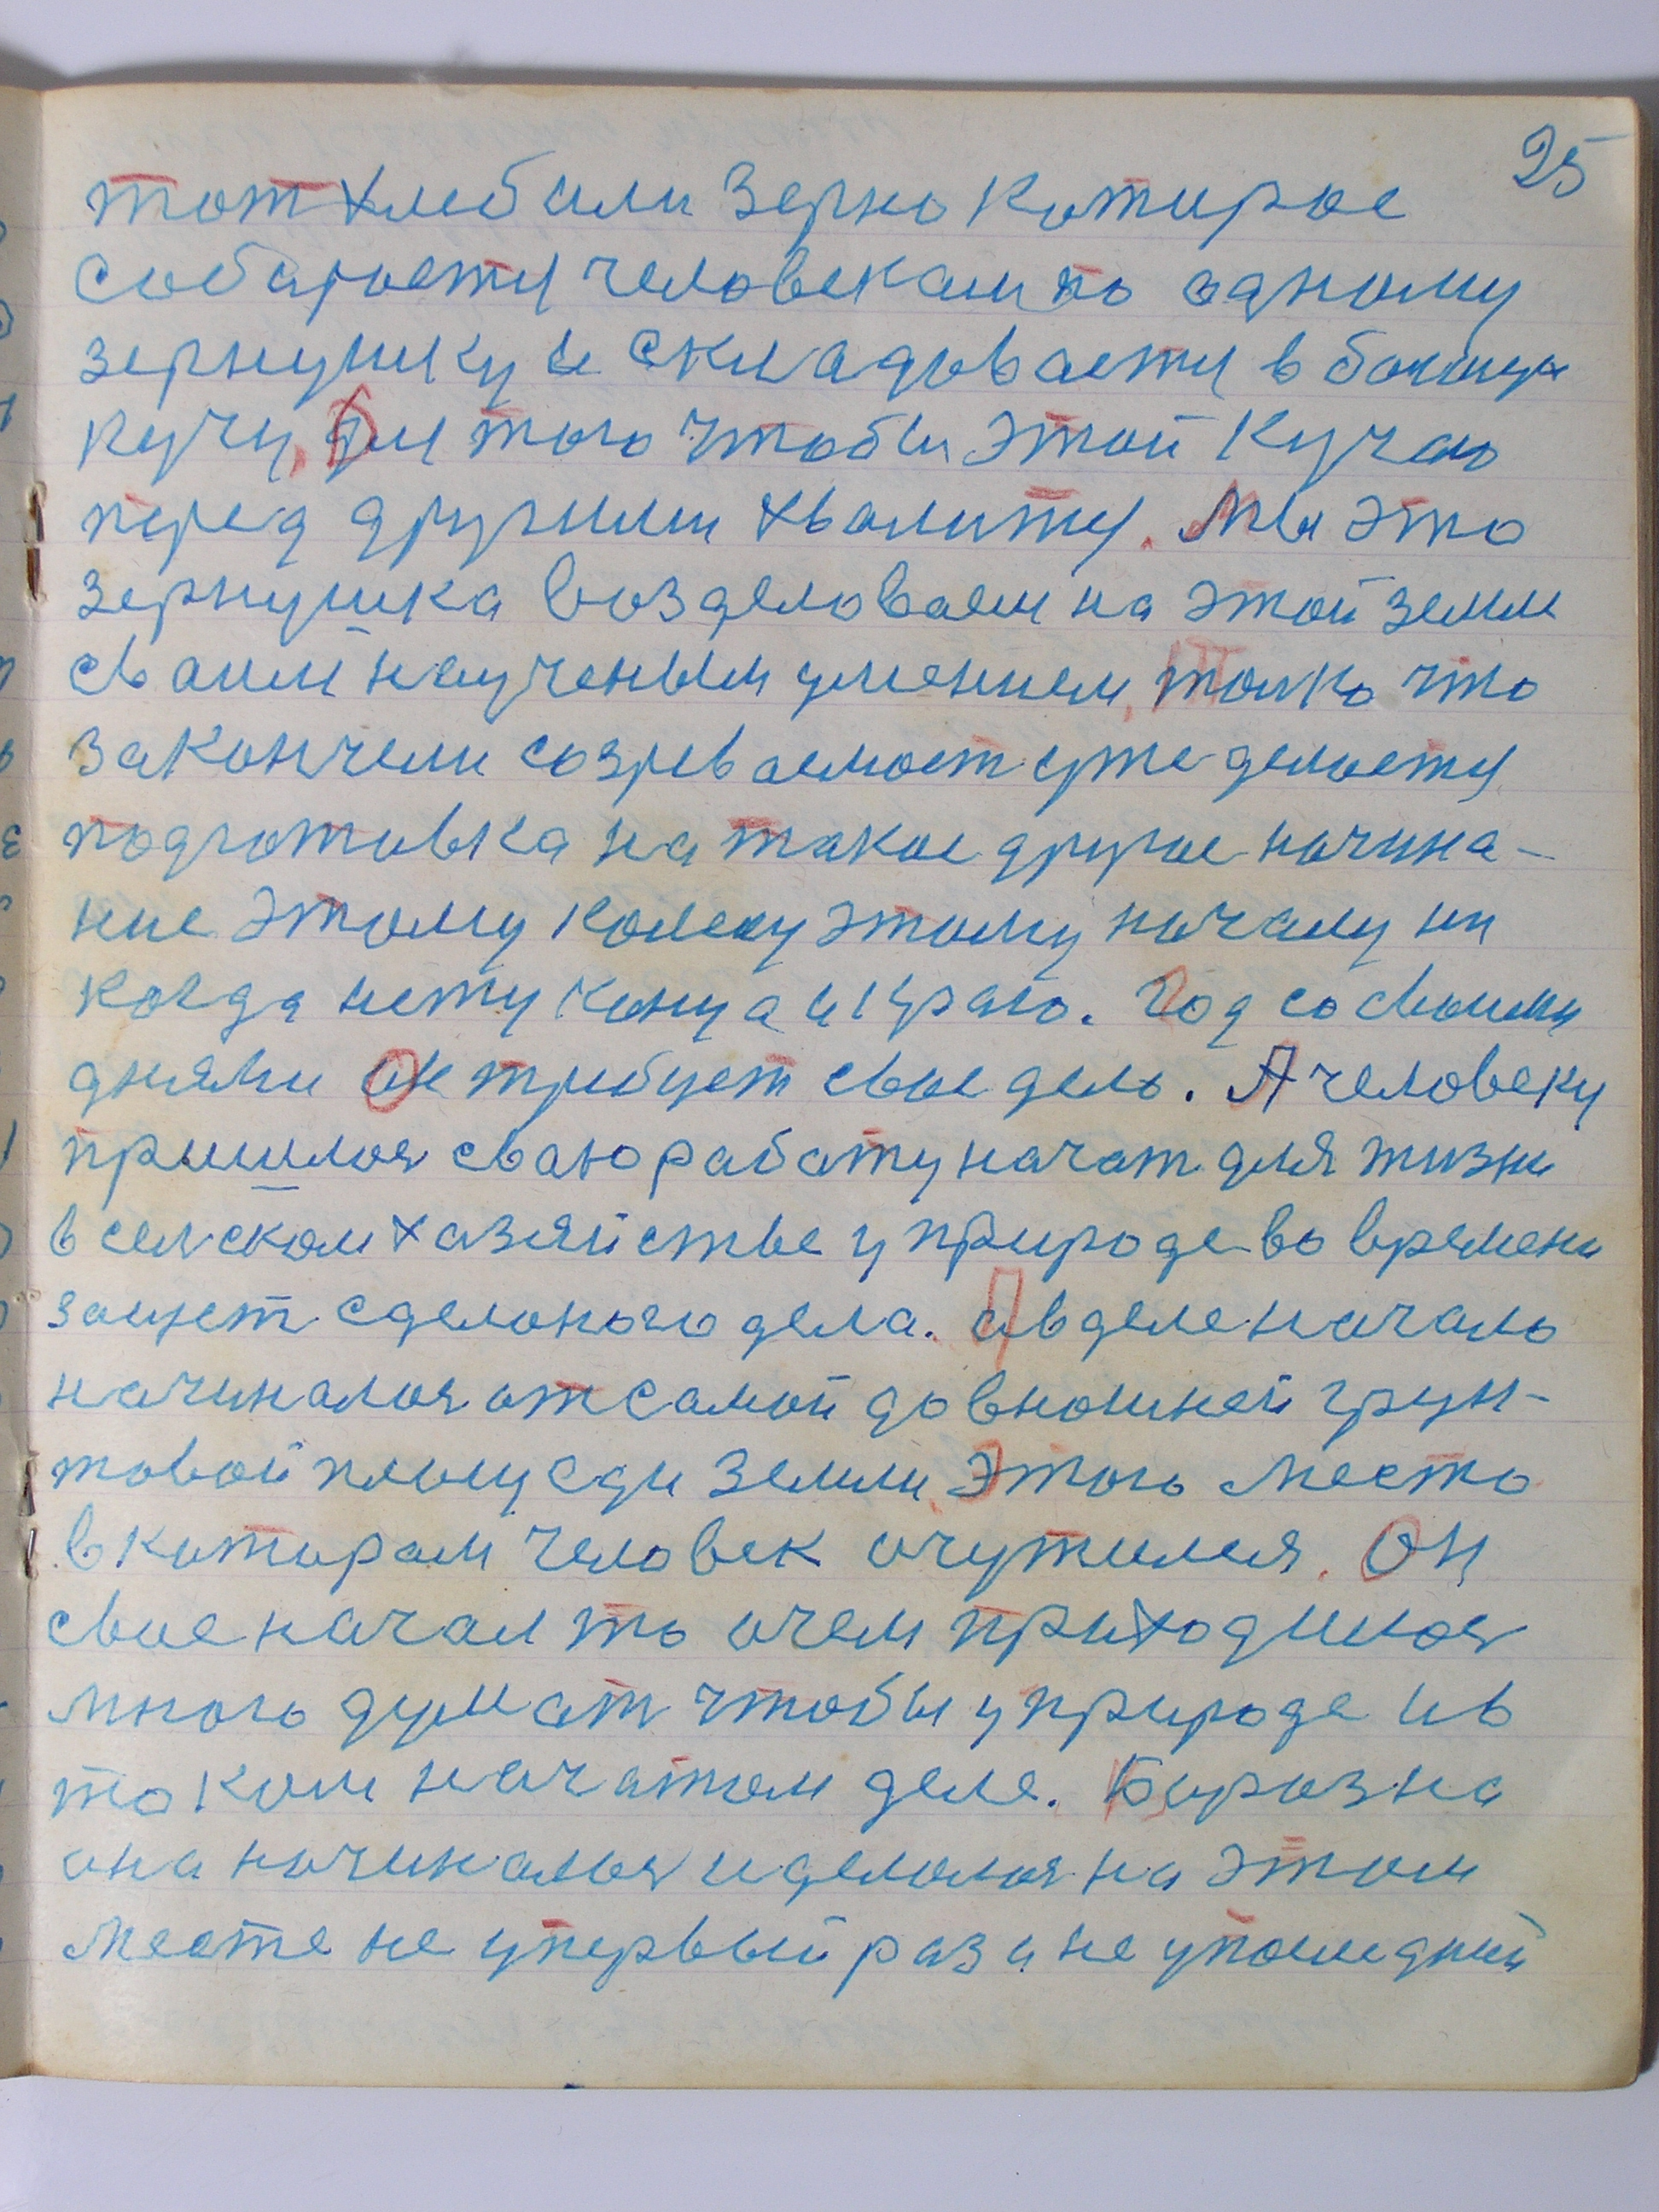 25
тот хлеб или зерно которое
собараетя человекам по одному
зернушку и складоваетя в большую
кучу, Для того чтобы этой кучаю
перед другими хвалитя. Мы это
зернушка возделоваем на этой земли
сваим научным умением, Толко что
закончели созреваемост уже делаетя
подготовка на такое другое начина-
ние этому колесу этому началу ни
когда нету конца и краю. Год со своими
днями он требует свое дело. А человеку
пришлося сваю работу начат для жизни
в селском хазяйстве у природе во времени
защет сделоного дела. А в деле начало
начиналося от самой довношней грун-
товой площеди земли, Этого место
в котором человек очутился. Он
свое начал то о чем приходилося
много думат чтобы у природе и в
таком начатом деле. Борозна
она начиналося и делолося на этом
месте не у первый раз и не у последний